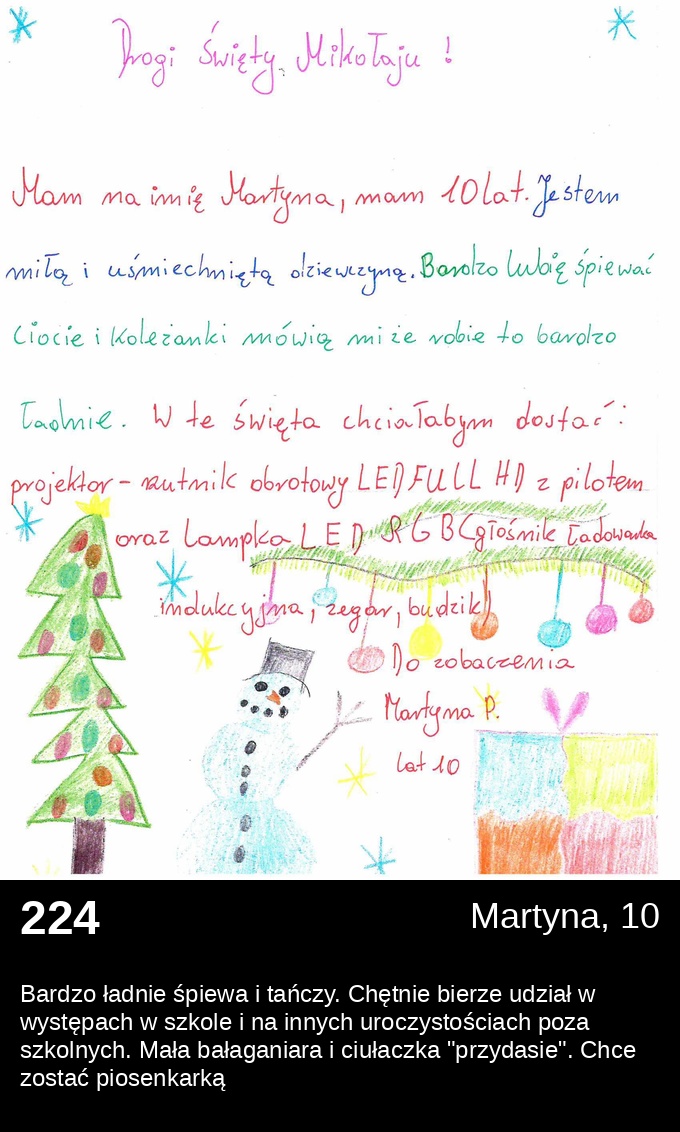 Drogi Święty Mikołaju !
Mam na imię Martyna, mam 10 lat. Jestem
miłą i uśmiechniętą dziewczyną. Bardzo lubię śpiewać
Ciocie i koleżanki mówią mi że robie to bardzo
ładnie. W te święta chciałabym dostać:
projektor - rzutnik obrotowy LED FULL HD z pilotem
oraz lampka LED RGB (głośnik ładowarka
indukcyjna, zegar, budzik)
Do zobaczenia
Martyna P.
lat 10
224
Martyna, 10
Bardzo ładnie śpiewa i tańczy. Chętnie bierze udział w
występach w szkole i na innych uroczystościach poza
szkolnych. Mała bałaganiara i ciułaczka "przydasie". Chce
zostać piosenkarką